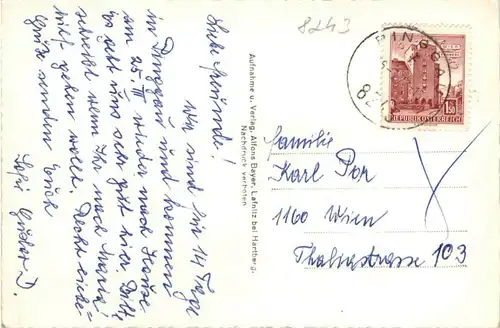 8243
Liebe Freunde!
Wir sind für 14 Tage
in Pinggau und kommen
am 25. III wieder nach Hause
es geht uns sehr gut hier. Bitte
schreibt wenn Ihr nach Maria
gehen wollt. Recht liebe
Grüße senden Euch
Aufnahme u. Verlag: Alfons Bayer, Lafnitz bei Hartberg.
Nachdruck verboten
PINGGAU
82
REPUBLIK ÖSTERREICH
1.50
Familie
Karl Por
1160 Wien
Thaliastrasse 103